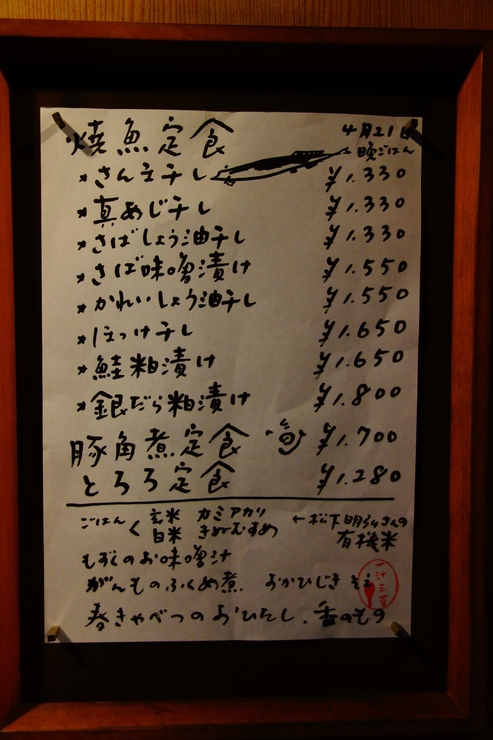 焼魚定食 4月21日
晩ごはん
*さんま干し ¥1.330
*真あじ干し ¥1.330
*さばしょう油干し ¥1.330
*さば味噌漬け ¥1.550
*かれいしょう油干し ¥1.550
*ほっけ干し ¥1.650
*鮭粕漬け ¥1.650
*銀だら粕漬け ¥1.800
豚角煮定食 旬 ¥1.700
とろろ定食 ¥1.280
ごはん < 玄米 カミアカリ ←松下明弘さんの
白米 きぬむすめ 有機米
もずくのお味噌汁
がんものふくめ煮 おかひじき
春きゃべつのおひたし、香のもの